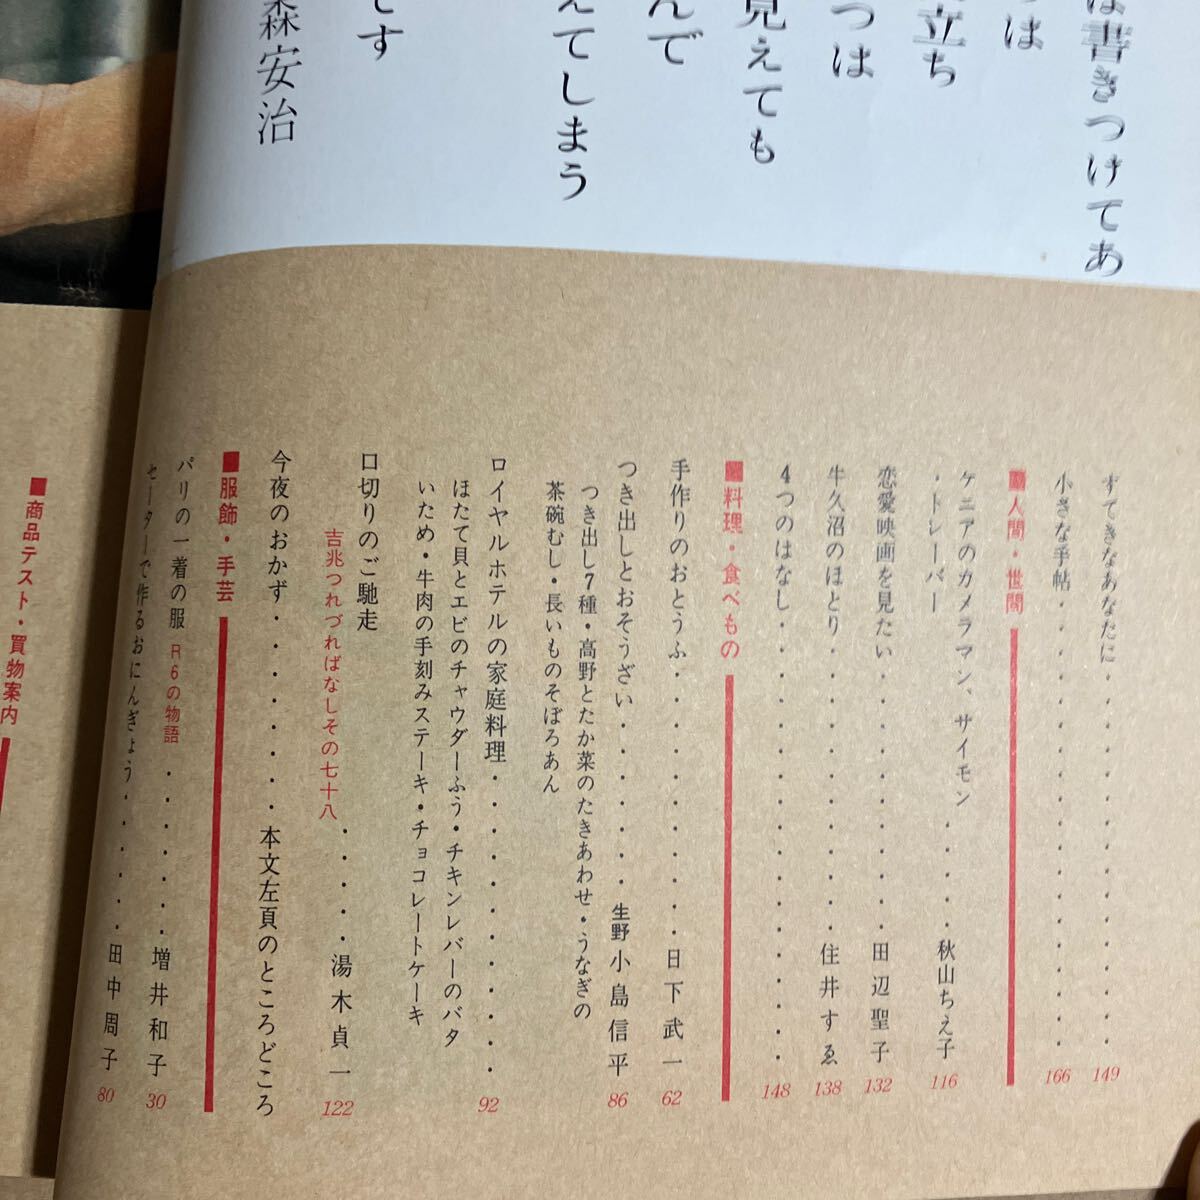 は書きつけてあ
は
立ち
つは
見えても
んで
えてしまう
です
森安治
すてきなあなたに・・・・・・・・・・・149
小さな手帖・・・・・・・・・・・166
■人間・世間
ケニアのカメラマン、サイモン
・トレーバー・・・・秋山ちえ子 116
恋愛映画を見たい・・・・・・・田辺聖子 132
牛久沼のほとり・・・・・・・住井すゑ 138
4つのはなし・・・・・・・・・・・148
■料理・食べもの
手作りのおとうふ・・・・・・・日下武一 62
つき出しとおそうざい・・・・・・生野小島信平 86
つき出し7種・高野とたか菜のたきあわせ・うなぎの
茶碗むし・長いものそぼろあん
ロイヤルホテルの家庭料理・・・・・・・・92
ほたて貝とエビのチャウダーふう・チキンレバーのバタ
いため・牛肉の手刻みステーキ・チョコレートケーキ
口切りのご馳走
吉兆つれづればなしその七十八・・・・湯木貞一 122
今夜のおかず・・・・・・本文左頁のところどころ
■服飾・手芸
パリの一着の服 R6の物語・・・・増井和子 30
セーターで作るおにんぎょう・・・・・田中周子 80
■商品テスト・買物案内